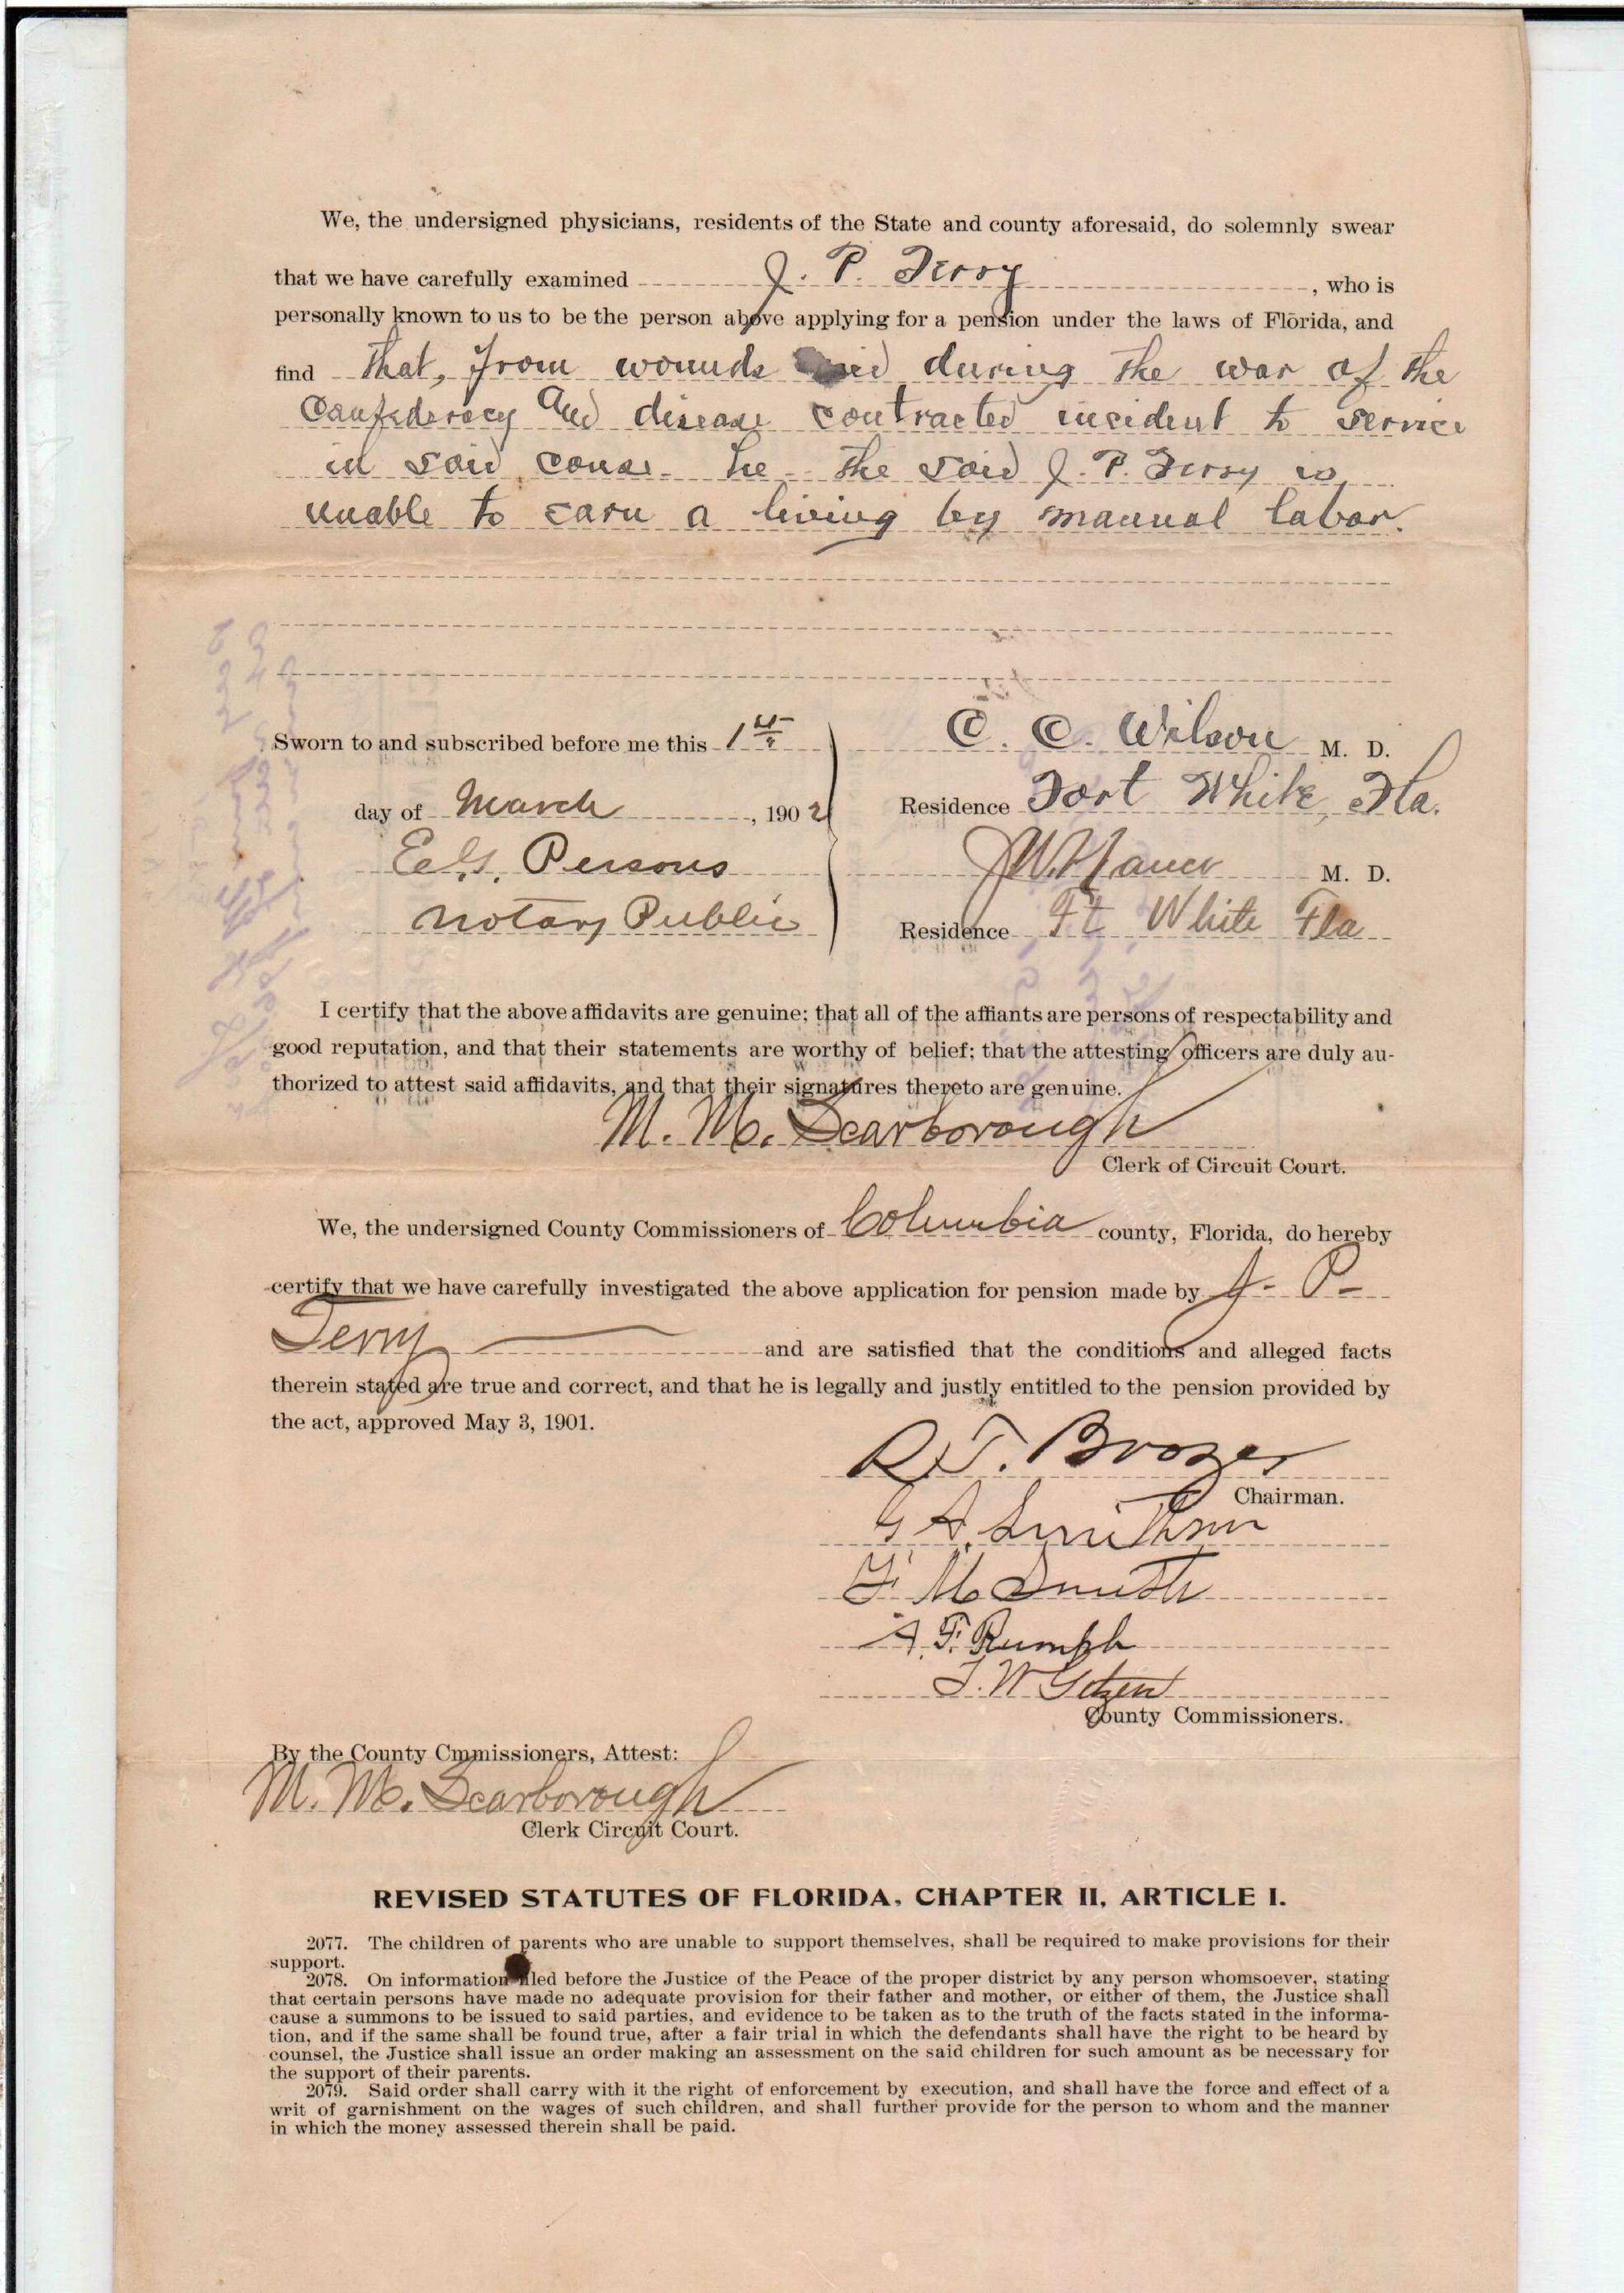 We, the undersigned physicians, residents of the State and county aforesaid, do solemnly swear
that we have carefully examined J. P. Terry, who is
personally known to us to be the person above applying for a pension under the laws of Florida, and
find that, from wounds during the war of the
Confederacy and disease contracted incident to service
in said cause he the said J. P. Terry is
unable to earn a living by manual labor.
Sworn to and subscribed before me this 1st
C. C. Wilson M. D.
day of March, 1902
Residence Fort White, Fla.
Persons
J W M. D.
Notary Public
Residence Ft White Fla
I certify that the above affidavits are genuine; that all of the affiants are persons of respectability and
good reputation, and that their statements are worthy of belief; that the attesting officers are duly au-
thorized to attest said affidavits, and that their signatures thereto are genuine.
M. M. Scarborough
Clerk of Circuit Court.
We, the undersigned County Commissioners of Columbia county, Florida, do hereby
certify that we have carefully investigated the above application for pension made by J. P.
Terry and are satisfied that the conditions and alleged facts
therein stated are true and correct, and that he is legally and justly entitled to the pension provided by
the act, approved May 3, 1901.
R. T. Boozer
Chairman.
G A. Smithson
F. M Smith
A. F. Rumph
T. W Getzen
County Commissioners.
By the County Cmmissioners, Attest:
M. M. Scarborough
Clerk Circuit Court.
REVISED STATUTES OF FLORIDA, CHAPTER II, ARTICLE I.
2077. The children of parents who are unable to support themselves, shall be required to make provisions for their
support.
2078. On information filed before the Justice of the Peace of the proper district by any person whomsoever, stating
that certain persons have made no adequate provision for their father and mother, or either of them, the Justice shall
cause a summons to be issued to said parties, and evidence to be taken as to the truth of the facts stated in the informa-
tion, and if the same shall be found true, after a fair trial in which the defendants shall have the right to be heard by
counsel, the Justice shall issue an order making an assessment on the said children for such amount as be necessary for
the support of their parents.
2079. Said order shall carry with it the right of enforcement by execution, and shall have the force and effect of a
writ of garnishment on the wages of such children, and shall further provide for the person to whom and the manner
in which the money assessed therein shall be paid.